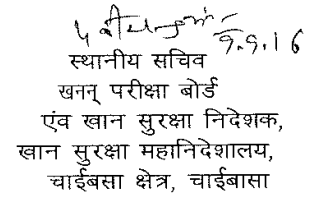 9.9.16
स्थानीय सचिव
खनन् परीक्षा बोर्ड
एंव खान सुरक्षा निदेशक,
खान सुरक्षा महानिदेशालय,
चाईबसा क्षेत्र, चाईबासा